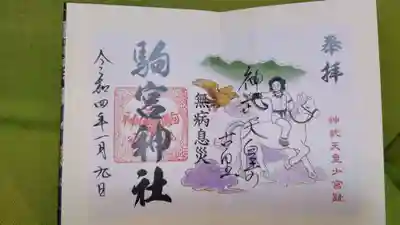 奉拝
神武天皇少宮趾
神武天皇の
古里
無病息災
駒宮神社
令和四年一月九日